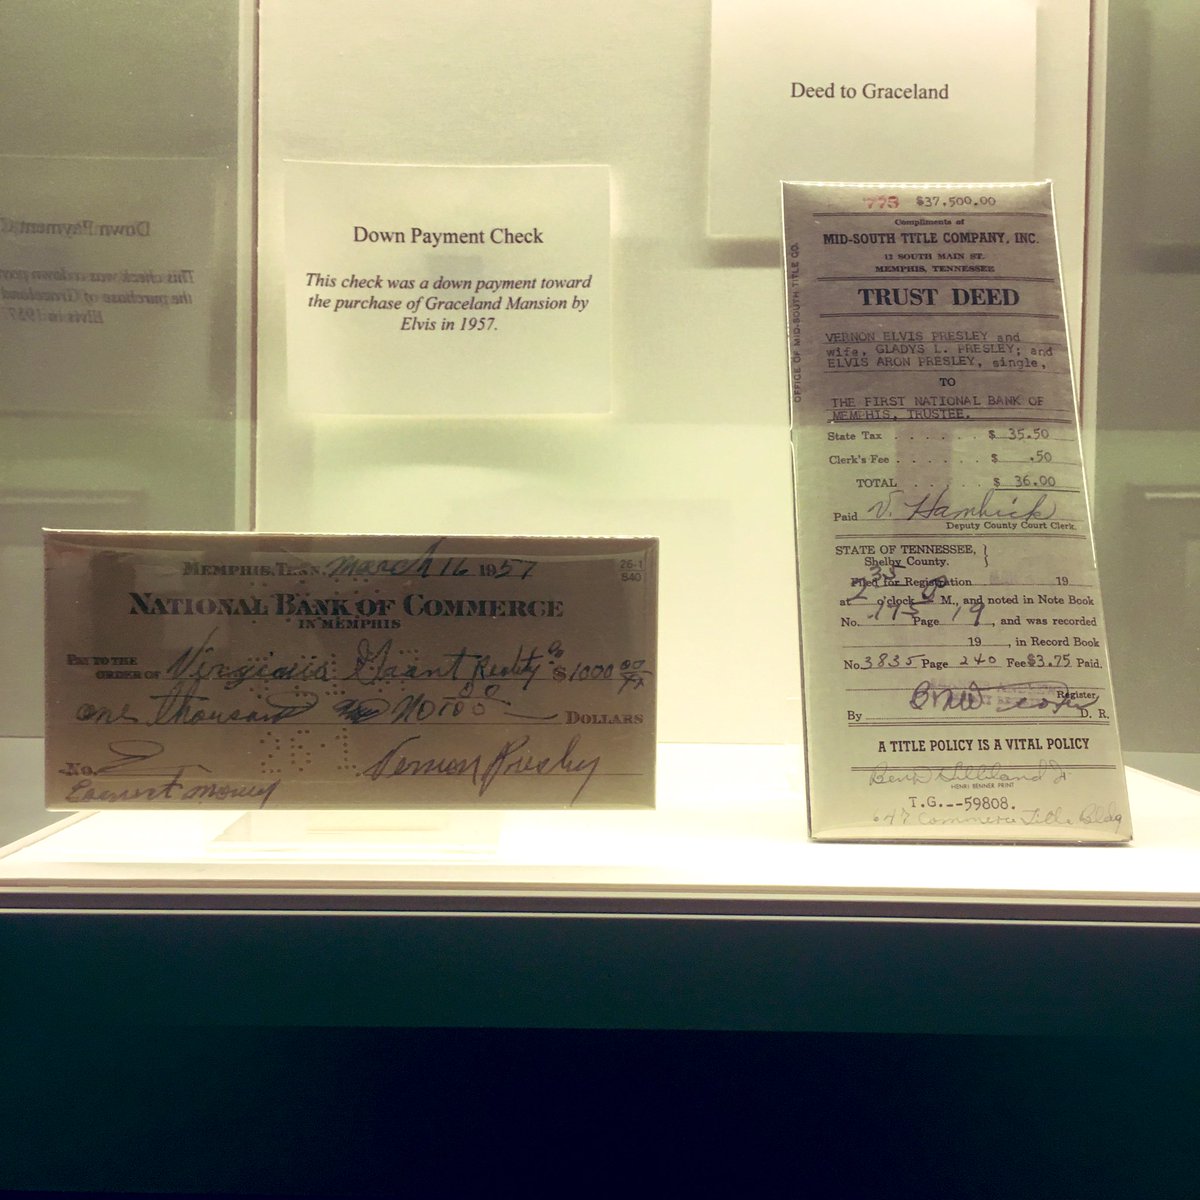 Deed to Graceland
Down Payment Check
This check was a down payment toward
the purchase of Graceland Mansion by
Elvis in 1957.
MEMPHIS, TENN. March 16 1957
26-1
840
NATIONAL BANK OF COMMERCE
IN MEMPHIS
PAY TO THE
ORDER OF Virginia Grant Realty Co $1000 00/xx
one thousand no 100 DOLLARS
261
No. Vernon Presley
Earnest money
773 $37,500.00
Compliments of
MID-SOUTH TITLE COMPANY, INC.
12 SOUTH MAIN ST.
MEMPHIS, TENNESSEE
OFFICE OF MID-SOUTH TITLE CO.
TRUST DEED
VERNON ELVIS PRESLEY and
wife, GLADYS L. PRESLEY; and
ELVIS ARON PRESLEY, single,
TO
THE FIRST NATIONAL BANK OF
MEMPHIS, TRUSTEE.
State Tax . . . . . . $ 35.50
Clerk's Fee . . . . . . $ .50
TOTAL . . . . . . $ 36.00
Paid V. Hambick
Deputy County Court Clerk.
STATE OF TENNESSEE, }
Shelby County.
Filed for Registration 19
at 2 35 o'clock P M., and noted in Note Book
No. 173 Page 19, and was recorded
19, in Record Book
No. 3835 Page 240 Fee $3.75 Paid.
Register,
By D. R.
A TITLE POLICY IS A VITAL POLICY
Ben Gilliland Jr
HENRI BENNER PRINT
T.G.--59808.
647 Commerce Title Bldg